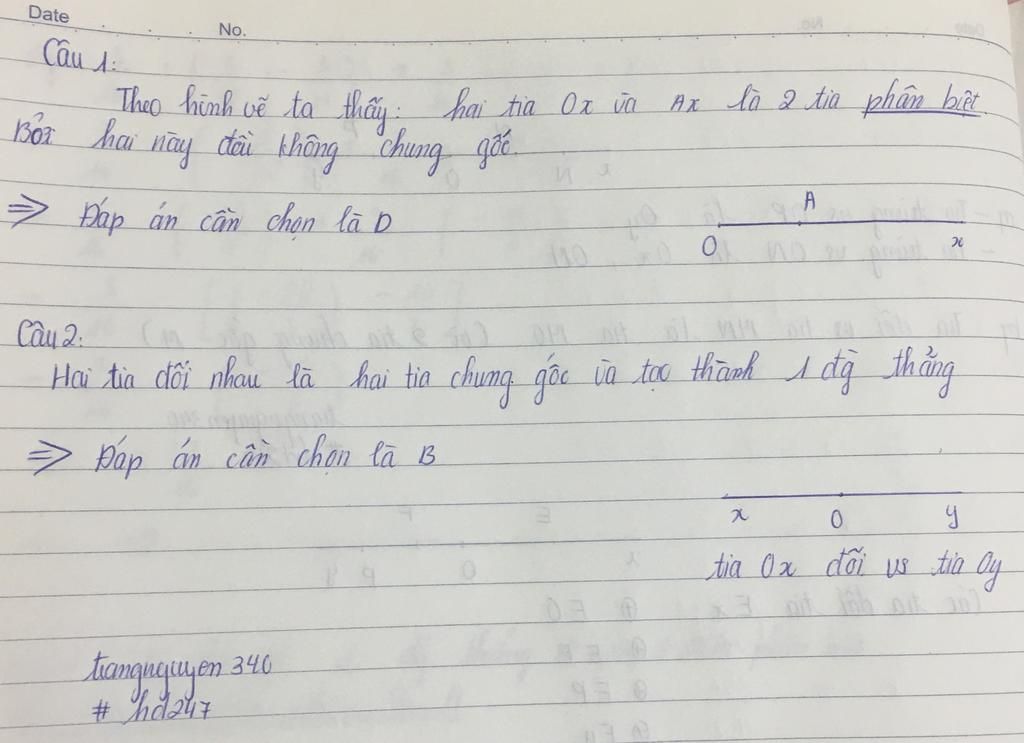 Date
No.
Câu 1:
Theo hình vẽ ta thấy: hai tia Ox và Ax là 2 tia phân biệt.
Bởi hai này đều không chung gốc.
⇒ Đáp án cần chọn là D
A
O
x
Câu 2:
Hai tia đối nhau là hai tia chung gốc và tạo thành 1 đg̀ thẳng
⇒ Đáp án cần chọn là B
x O y
tia Ox đối vs tia Oy
trangnguyen 340
# hd247